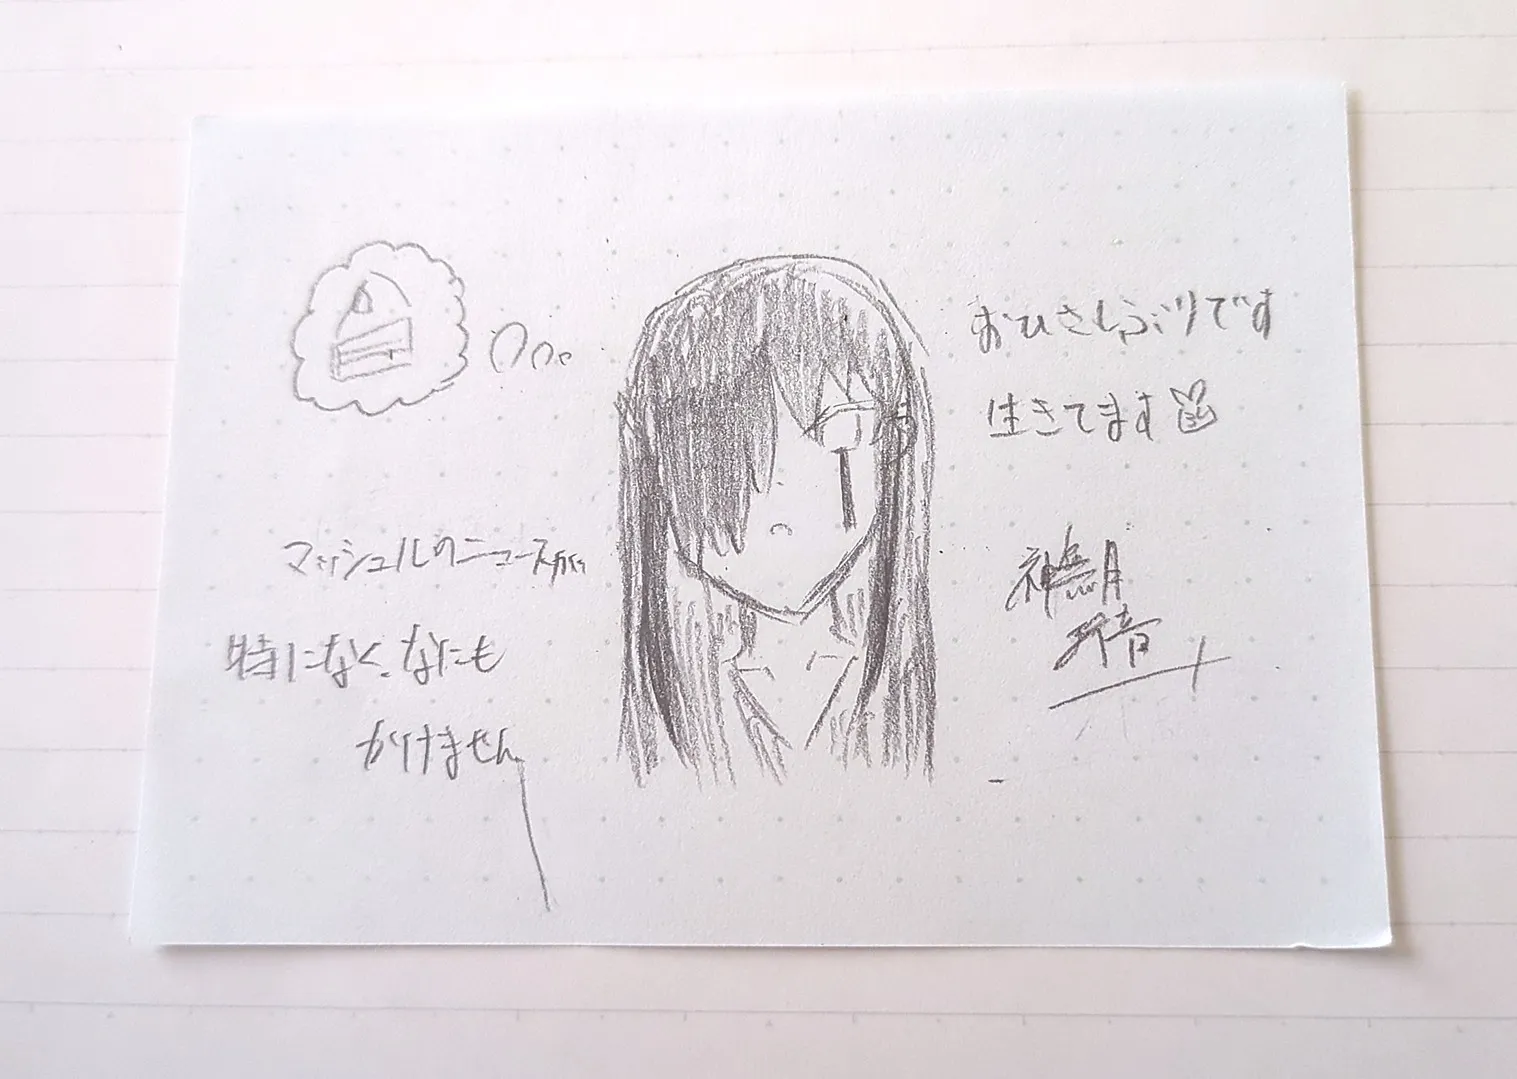 おひさしぶりです
生きてます
マッシュルのニュースが
特になく、なにも
かけません
神無月